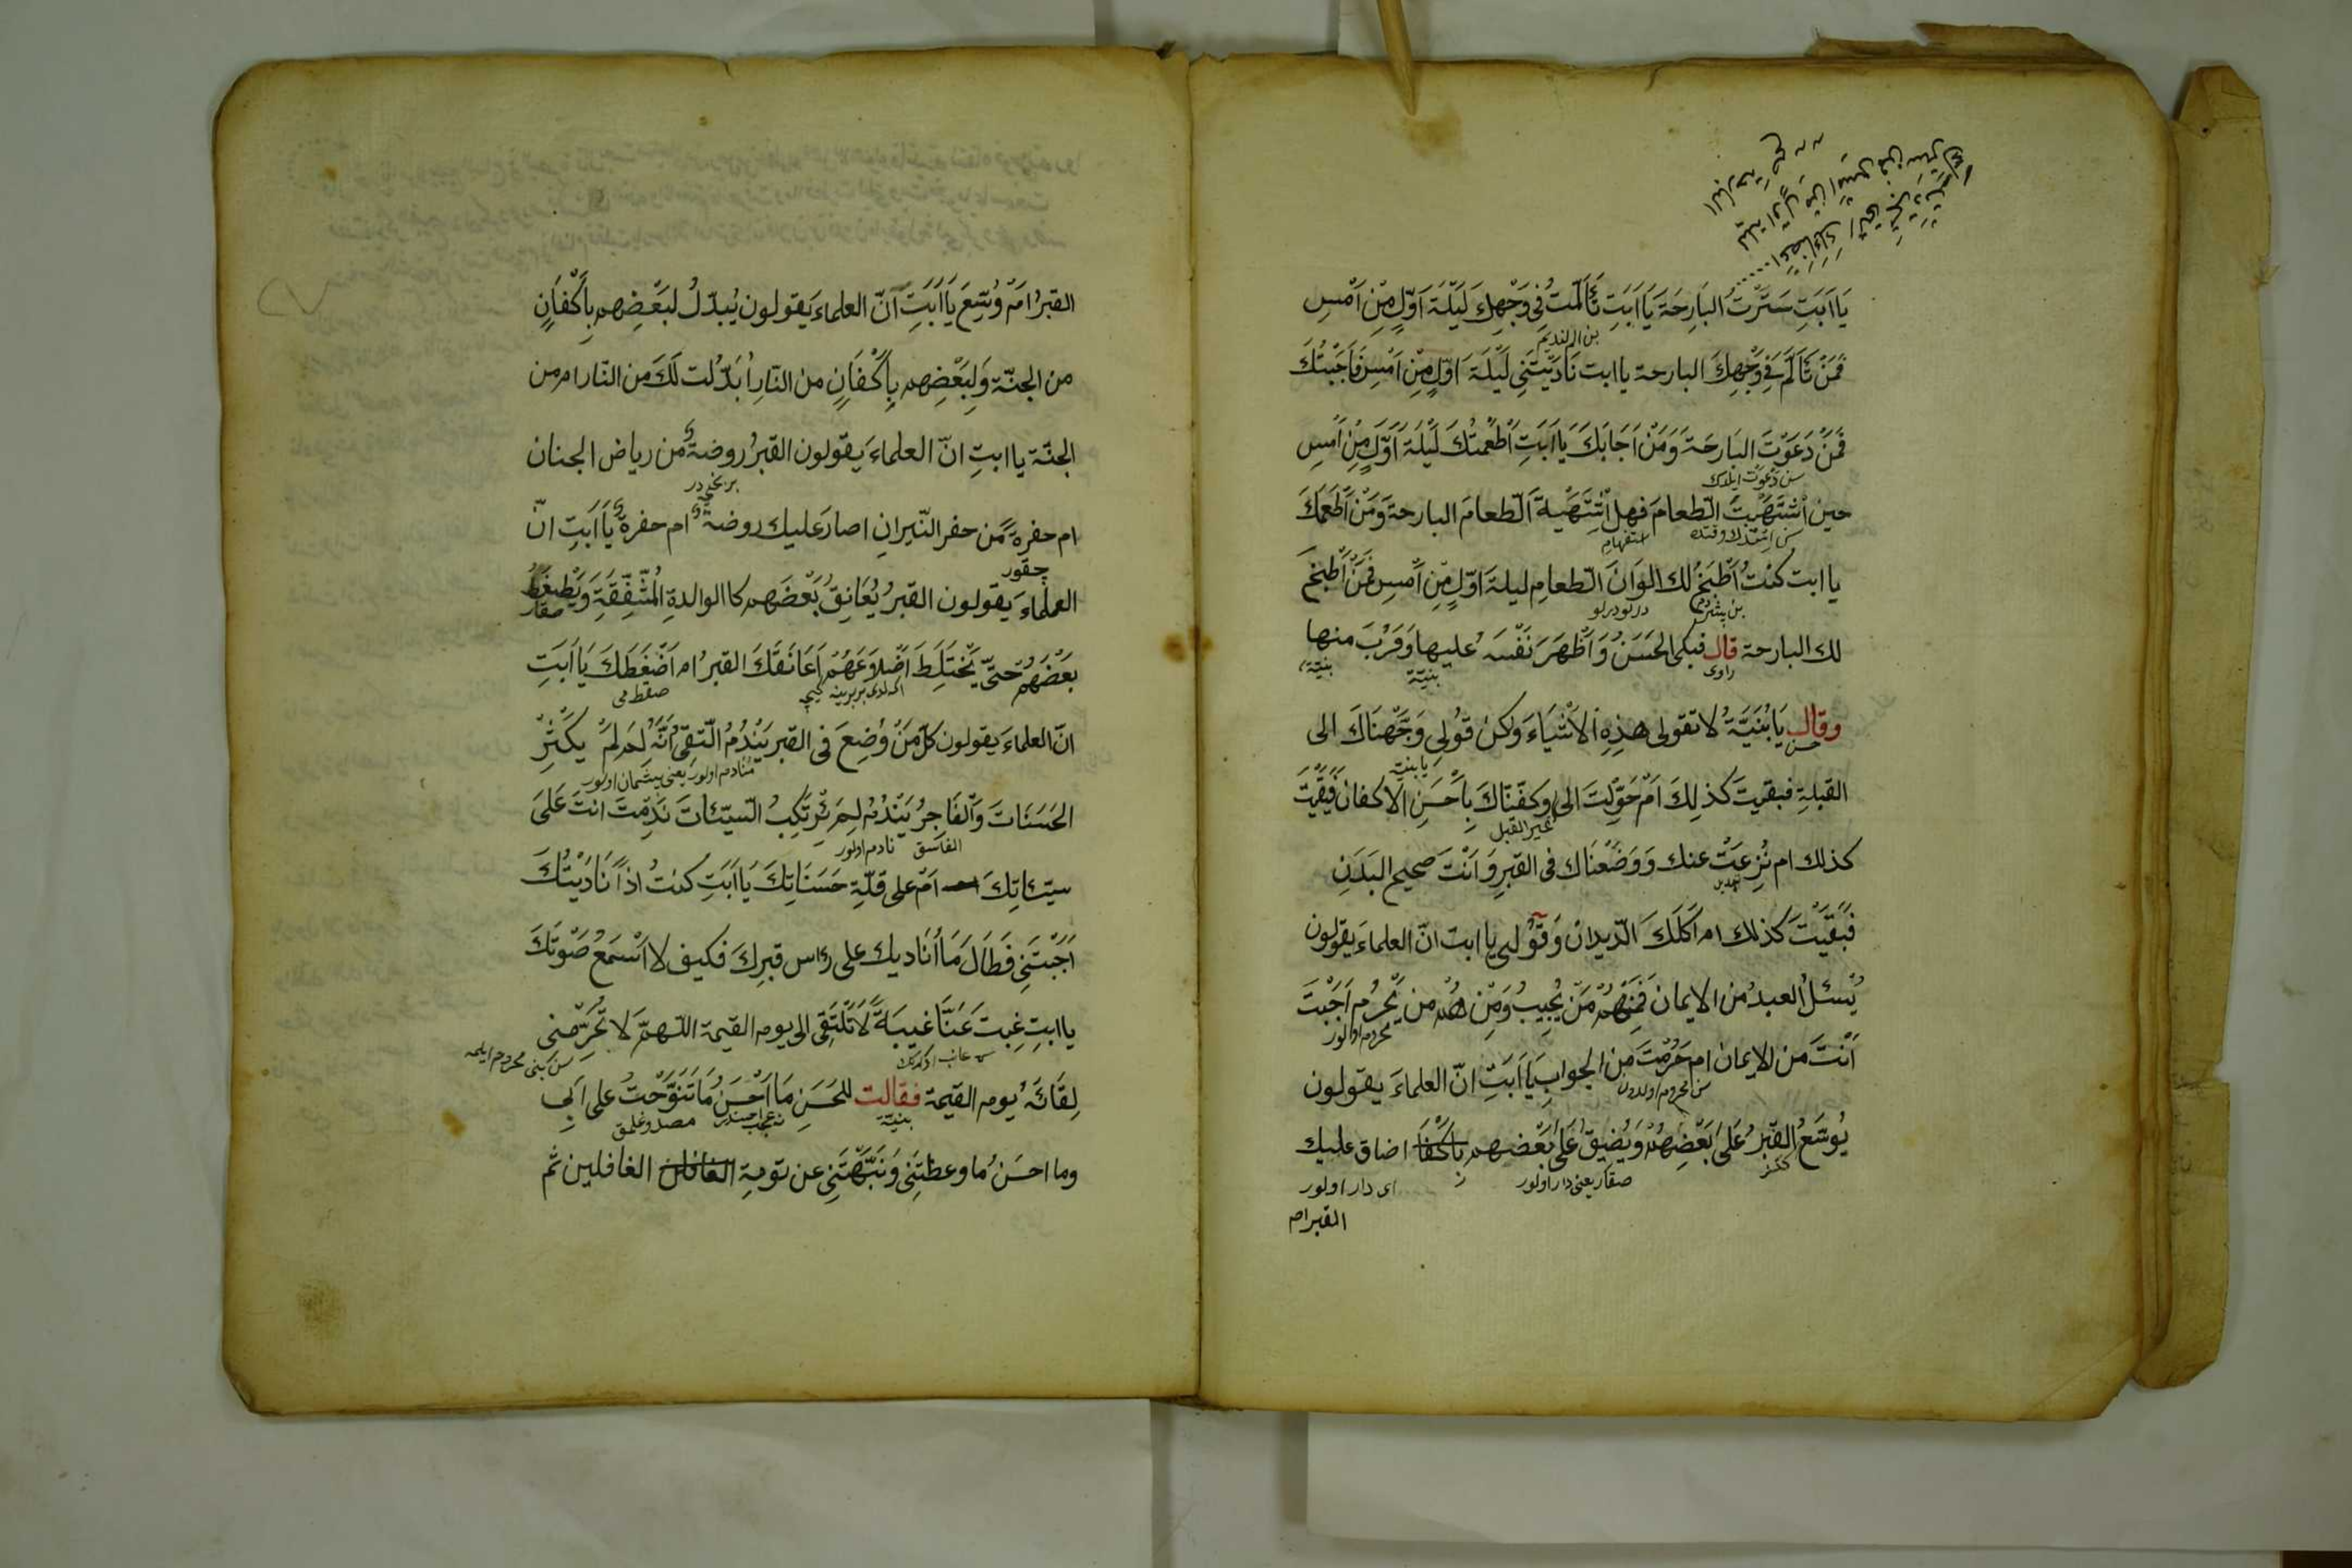 اعضائك التى تجردت
ليلة اول من امس فمن ستر
البارحة صح
يَا اَبَتِ سَتَرْتُ البَارِحَةَ يَا اَبَتِ تَأَلَّمْتُ فِى وَجْهِكَ لَيْلَةَ اَوَّلٍ مِنْ اَمْسِ
فَمَنْ تَأَلَّمَ فِى وَجْهِكَ البارحة يا ابت نَادَيْتَنِى لَيْلَةَ اوّلٍ مِنْ اَمْسِ فَاَجَبْتُكَ
فَمَنْ دَعَوْتَ البَارِحَةَ وَمَنْ اَجَابَكَ يَا اَبَتِ اَطْعَمْتُكَ لَيْلَةَ اَوَّلٍ مِنْ اَمْسِ
سن دعوت ايلدك
حين اشْتَهَيْتَ الطعامَ فهل اشْتَهَيْتَ الطعامَ البارحة وَمَنْ اَطْعَمَكَ
استفهام
يا ابت كنتُ اَطْبَخُ لك الوَانَ الطعامِ ليلةَ اوّلٍ مِنْ اَمْسِ فَمَنْ اَطْبَخَ
بن پشردم
لك البارحة قال فبكى الحَسَنُ وَاَظْهَرَ نَفْسَهُ عليها وَقَرُبَ منها
راوى بنيّة بنيّة
وقال يَا بُنَيَّةُ لا تقولى هذِهِ الاَشْيَاءَ ولكن قُولِى وَجَّهْنَاكَ الى
حسن يا بنيّة
القبلةِ فبقيتَ كذلِكَ اَمْ حَوِّلْتَ الى وكفّنّاكَ بِاَحْسَنِ الاكفان فَبَقَيْتَ
غير القبل
كذلك ام نُزِعَتْ عنك وَوَضَعْنَاكَ فى القبرِ وَاَنْتَ صحيح البَدَنِ
فَبَقَيْتَ كذلك ام اَكَلَكَ الدّيدانُ وَقُولِى يا ابت انّ العلماءَ يقولون
يُسْئَلُ العبدُ من الايمان فَمِنْهُمْ مَنْ يُجِيبُ وَمِنْهُمْ من يُحْرَمُ اَجَبْتَ
محروم اولور
اَنْتَ من الايمان ام حُرِمْتَ مِنَ الجوابِ يَا اَبَتِ انّ العلماءَ يقولون
سن محروم اولدون
يُوسَّعُ القَبْرُ عَلَى بَعْضِهِمْ وَيُضَيَّقُ عَلَى بَعْضِهِم باكفا اضاق عليك
صقار يعنى دار اولور اى دار اولور
القبر ام
القبرُ اَمْ وُسِّعَ يَا اَبَتِ انّ العلماءَ يَقولون يُبدّلُ لبَعْضِهم بِاَكْفَانٍ
من الجنّة وَلِبَعْضِهم بِاَكْفَانٍ من النّارِ اُبَدِّلت لَكَ من النّار ام من
الجنّة يا ابتِ انّ العلماءَ يَقولون القبرُ روضةٌ من رياض الجنان
ام حفرةٌ من حفر النّيرانِ اصارَ عليك روضةً ام حفرةً يَا اَبَتِ انّ
چقور
العلماءَ يَقولون القبرُ يُعَانِقُ بَعْضَهم كا الوالدةِ المُشْفِقَةِ وَيَضْغَطُ
صقار
بَعْضَهُمْ حتّى يَخْتَلِطَ اَضْلاَعَهُمْ اَعَانَقَكَ القبرُ ام اَضْغَطَكَ يَا اَبَتِ
صقط مى
انّ العلماءَ يقولون كلّ مَنْ وُضِعَ فى القبر يَنْدُمُ التّقِىّ اَنَّهُ لِمَ لَمْ يكْثِرْ
نادم اولور يعنى پشمان اولور
الحَسَنَاتَ وَالفَاجِرُ يَنْدُمُ لِمَ يَرْتَكِبُ السيّئاتَ نَدِمْتَ انتَ عَلَى
الفاسق نادم اولور
سيّئاتِكَ اَمْ على قلّةِ حَسَنَاتِكَ يَا اَبَتِ كنتُ اذا نَادَيْتُكَ
اَجَبْتَنِى فَطَالَ مَا اُنَاديك على رَاس قبرِكَ فكيف لا اَسْمَعُ صَوْتَكَ
يا ابتِ غِبتَ عَنَّا غيبَةً لاَ تَلْتَقِى الى يوم القيمة اللّهمّ لا تُحَرِّمْنى
سن بنى محروم ايلمه
لِقَائَهُ يوم القيمة فقالت للحَسَنِ مَا اَحْسَنُ مَا تَنَوَّحْتُ على اَبِى
بنيّة
وما احسَنُ ما وعظْتَنِى وَنَبَّهْتَنِى عن نَومةِ الغافلين ثم